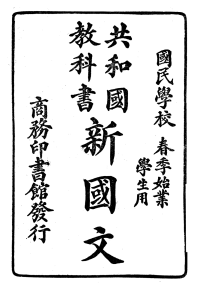 國民學校 春季始業
學生用
共和國
教科書
新國文
商務印書館發行